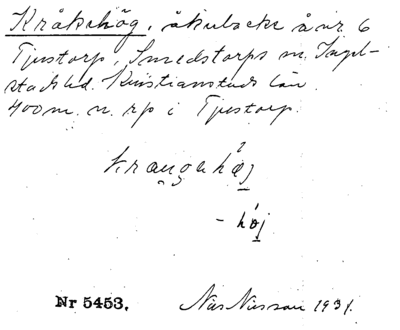 Kråkshög, åkubacke å nr 6
Tjustorp, Smedstorps sn. Ingel-
stads hd. Kristianstads län.
400 m. n. rp i Tjustorp.
- høj
Nr 5453. Nils Nilsson 1931.